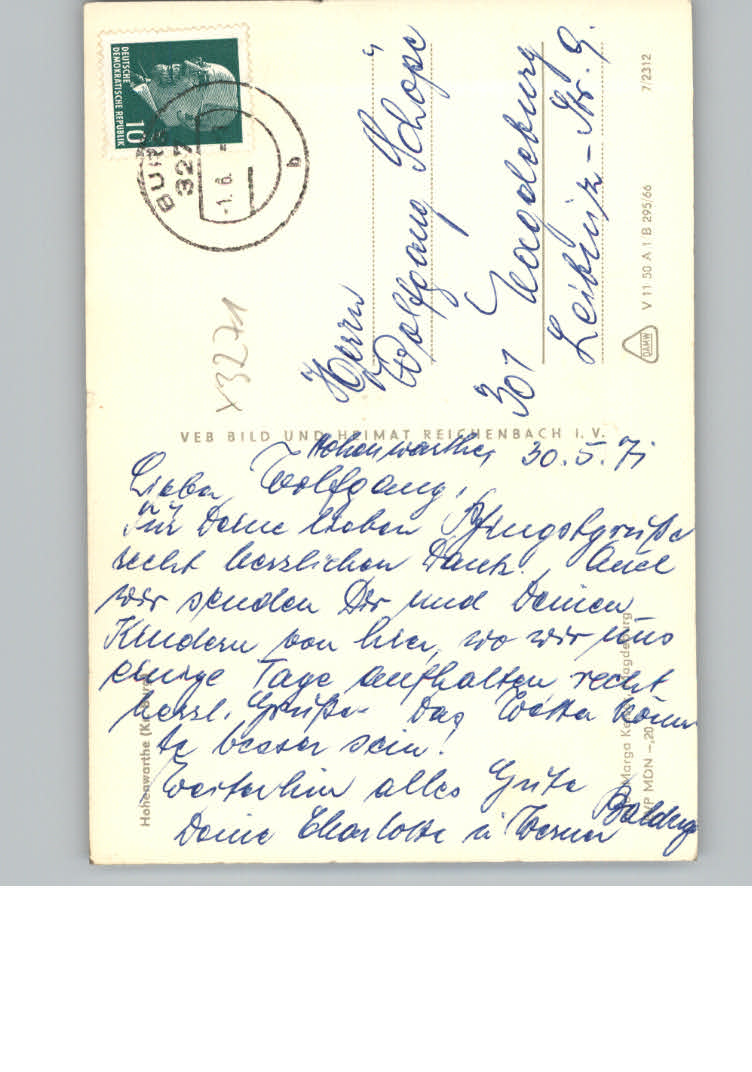 DEUTSCHE
DEMOKRATISCHE REPUBLIK
10
BURG
327
-1.6.
b
Herrn
Wolfgang Schope
301 Magdeburg
Leibniz-Str. 9.
7/2312
V 11 50 A 1 B 295/66
DAMW
x3271
VEB BILD UND HEIMAT REICHENBACH i. V.
Hohenwarthe, 30.5.71
Lieber Wolfgang,
Für Deine lieben Pfingstgrüße
recht herzlichen Dank. Auch
wir senden Dir und Deinen
Kindern von hier, wo wir uns
einige Tage aufhalten, recht
herzl. Grüße. Das Wetter könn
te besser sein!
Weiterhin alles Gute
Deine Charlotte u. Werner
Hohenwarthe (Kr. Burg)
Marga Magdeburg
MDN -,20